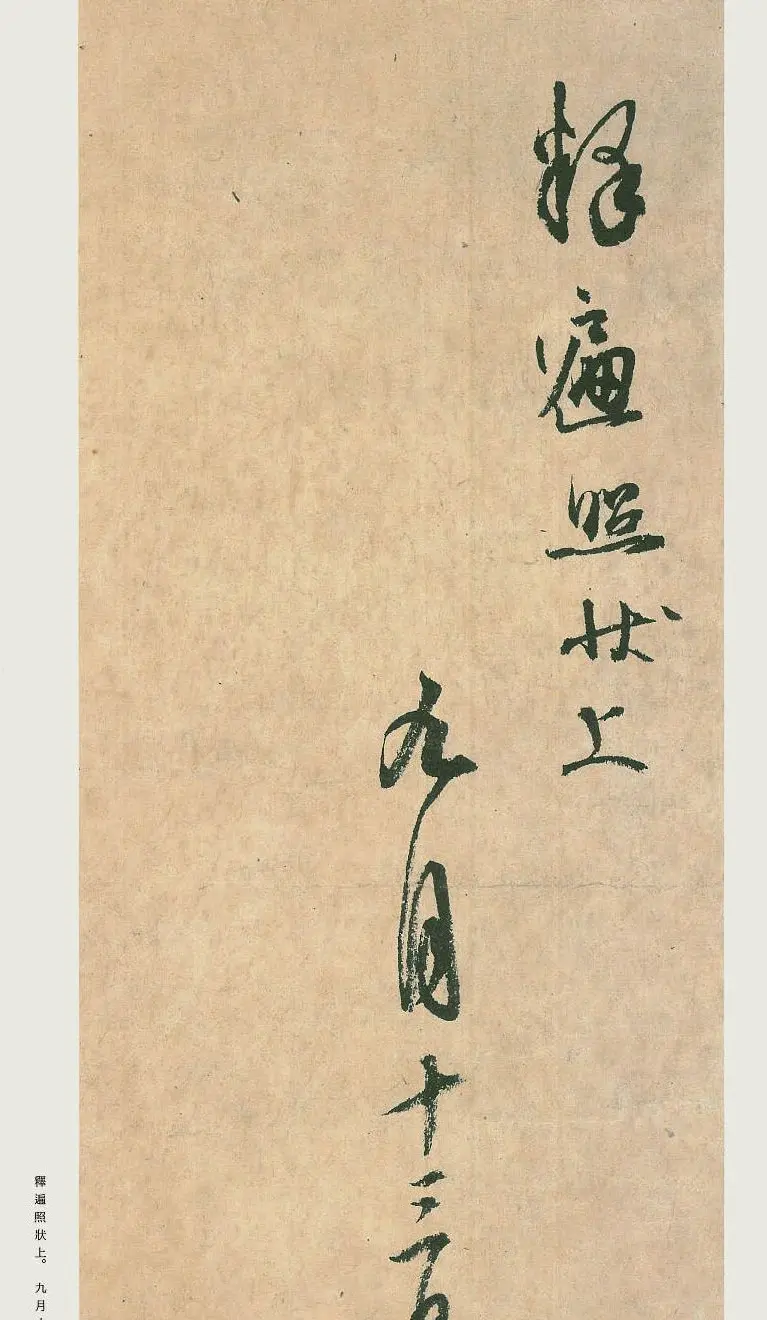 釋遍照狀上
九月十三日
釋遍照狀上。 九月